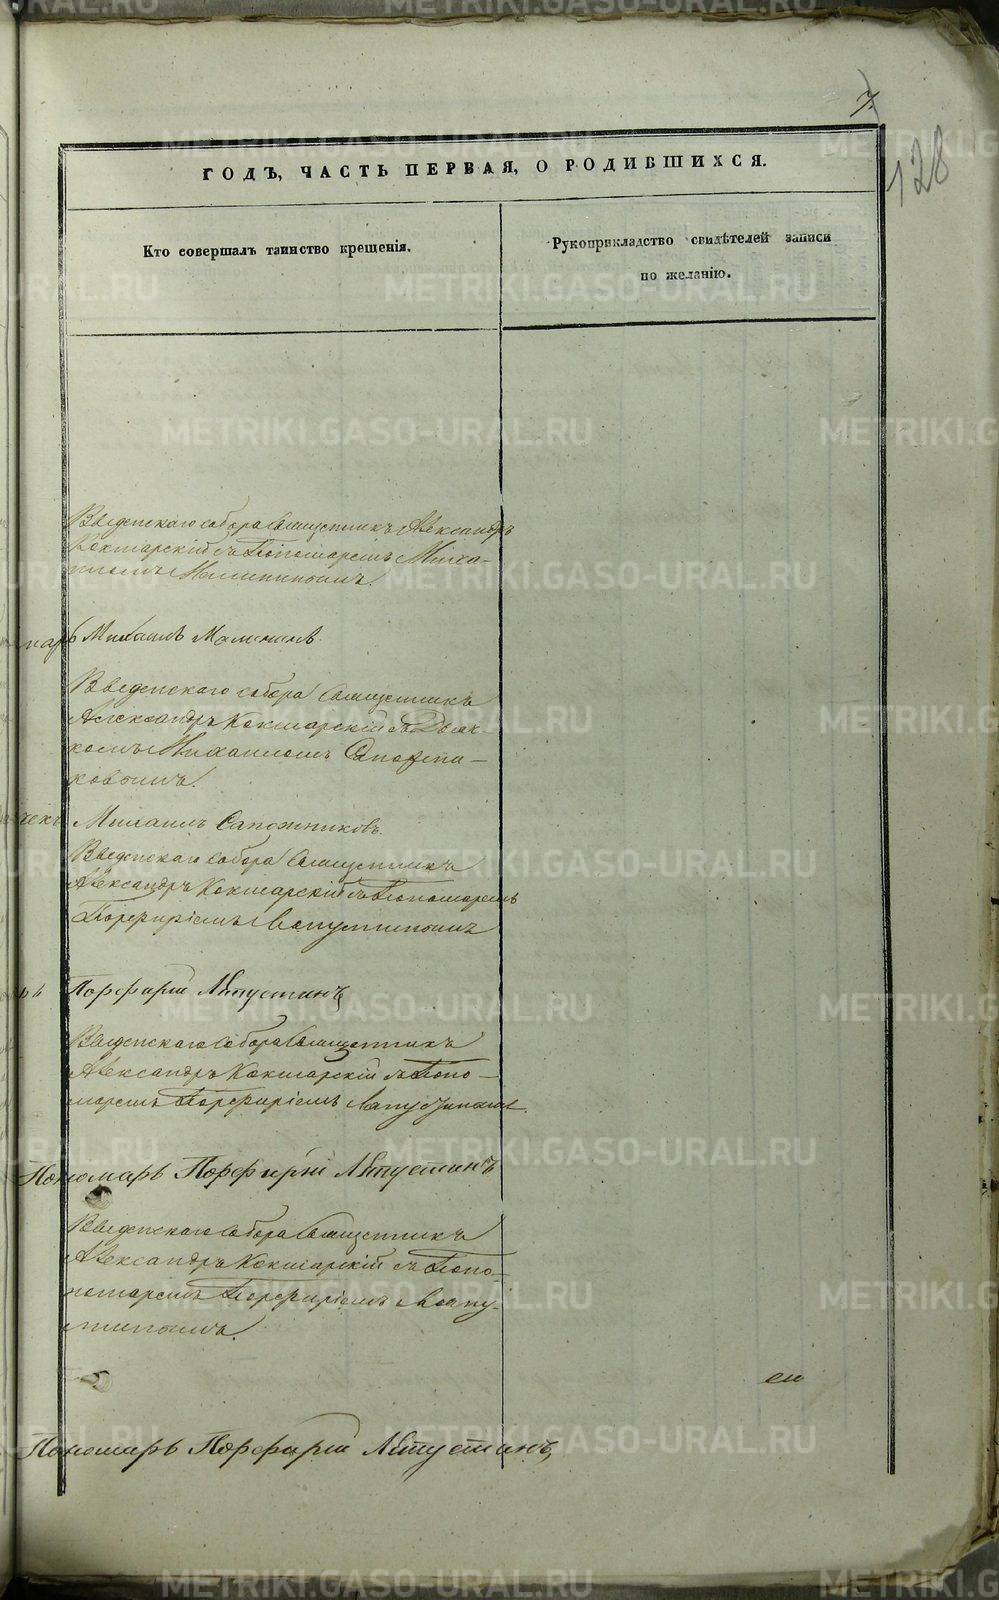 7
128
ГОДЪ, ЧАСТЬ ПЕРВАЯ, О РОДИВШИХСЯ.
Кто совершалъ таинство крещенія.
Рукоприкладство свидѣтелей записи
по желанію.
Введенскаго собора Священникъ Александръ
Кокшарскій съ Пономаремъ Миха-
иломъ Малининымъ.
марь Михаилъ Малининъ
Введенскаго собора Священникъ
Александръ Кокшарскій съ Дьяч-
комъ Михаиломъ Сапожни-
ковымъ.
чекъ Михаилъ Сапожниковъ
Введенскаго собора Священникъ
Александръ Кокшарскій съ Пономаремъ
Порфиріемъ Лапустинымъ
рь Порфирій Лапустинъ
Введенскаго Собора Священникъ
Александръ Кокшарскій съ Поно-
маремъ Порфиріемъ Лапустинымъ.
Пономарь Порфирій Лапустинъ
Введенскаго Собора Священникъ
Александръ Кокшарскій съ Поно-
номаремъ Порфиріемъ Лапу-
стинымъ.
Пономарь Порфирій Лапустинъ,
METRIKI.GASO-URAL.RU